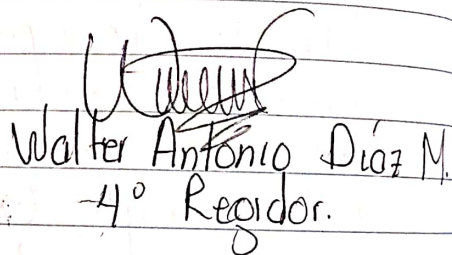 Walter Antonio Díaz M.
4° Regidor.